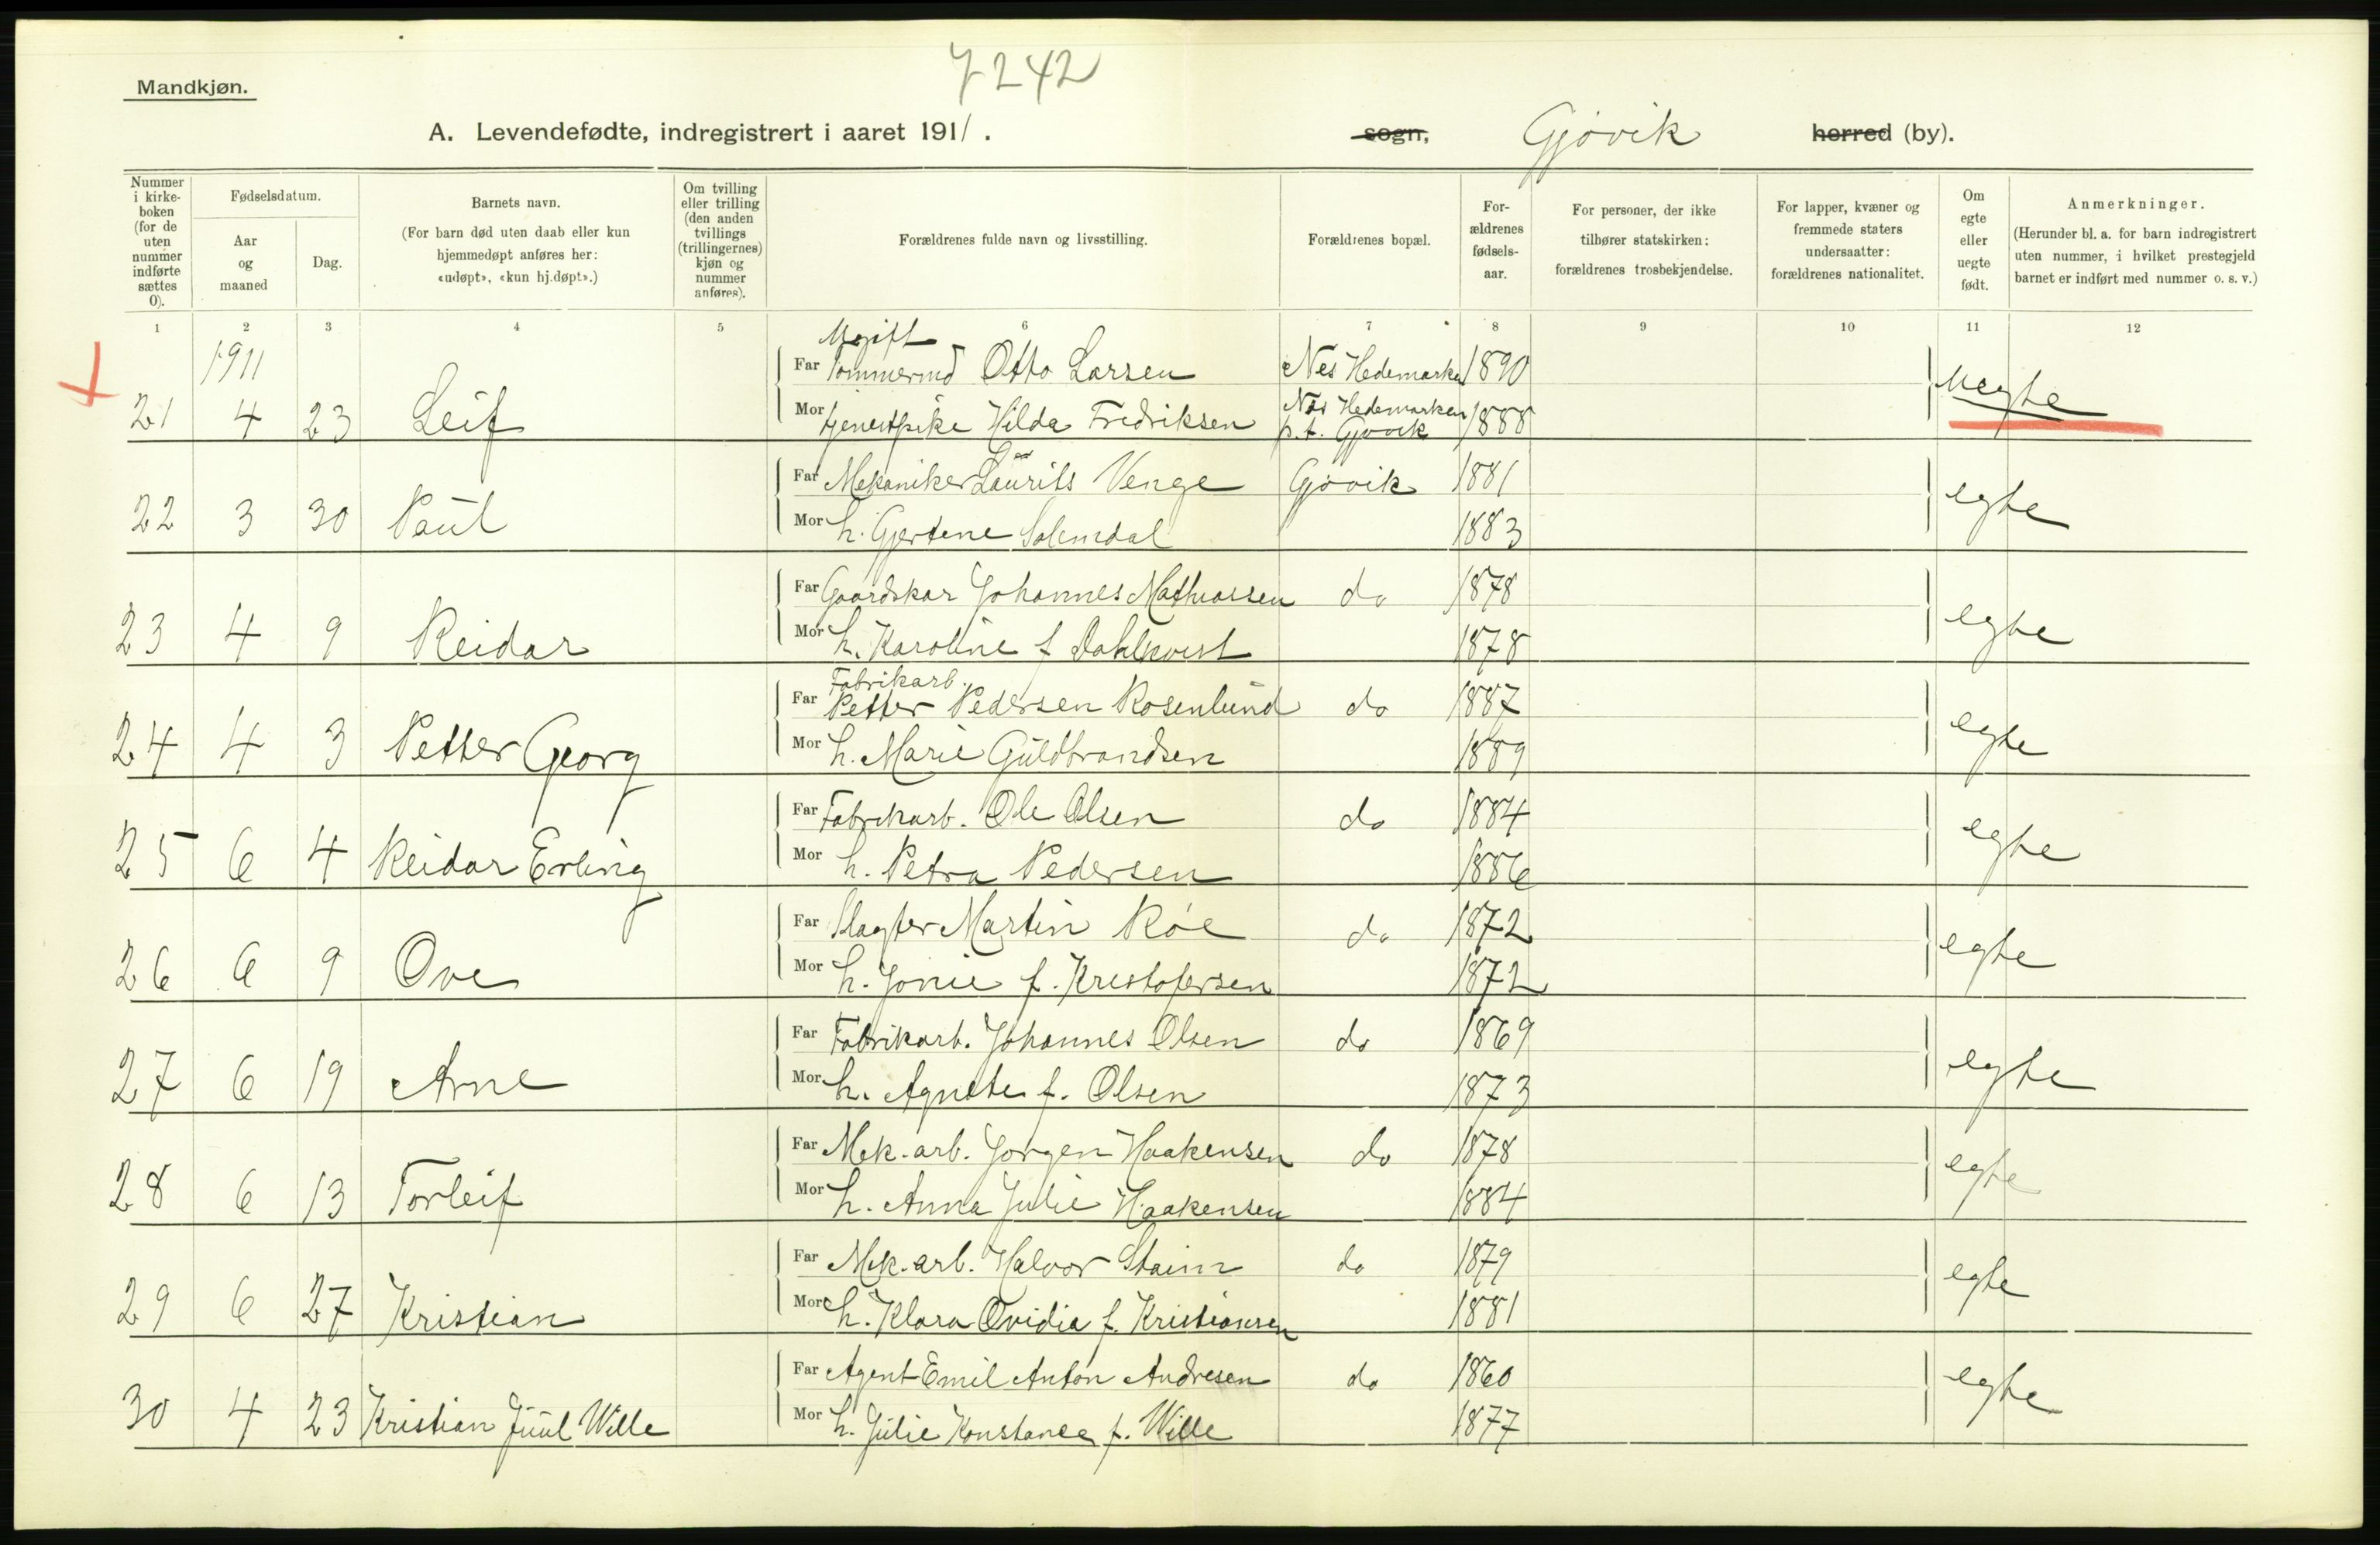 7242
Mandkjøn.
A. Levendefødte, indregistrert i aaret 1911.
sogn, Gjøvik herred (by).
Nummer i kirke-boken (for de uten nummer indførte sættes 0).
Fødselsdatum.
Aar og maaned
Dag.
Barnets navn.
(For barn død uten daab eller kun hjemmedøpt anføres her: «udøpt», «kun hj.døpt».)
Om tvilling eller trilling (den anden tvillings (trillingernes) kjøn og nummer anføres).
Forældrenes fulde navn og livsstilling.
Forældrenes bopæl.
For-ældrenes fødsels-aar.
For personer, der ikke tilhører statskirken: forældrenes trosbekjendelse.
For lapper, kvæner og fremmede staters undersaatter: forældrenes nationalitet.
Om egte eller uegte født.
Anmerkninger.
(Herunder bl. a. for barn indregistrert uten nummer, i hvilket prestegjeld barnet er indført med nummer o. s. v.)
1 2 3 4 5 6 7 8 9 10 11 12
1911
Ugift
Far Tømmermd Otto Larsen Nes Hedemarken 1890
21 4 23 Leif Mor Tjenestpike Hilda Fredriksen Nes Hedemarken p.t. Gjøvik 1888 uegte
Far Mekaniker Laurits Venge Gjøvik 1881
22 3 30 Paul Mor h. Gjertene 1883 egte
Far Gaardskar Johannes Mathiassen do 1878
23 4 9 Reidar Mor h. Karoline f Dahlkvist 1878 egte
Fabrikarb.
Far Petter Pedersen Rosenlund do 1887
24 4 3 Petter Georg Mor h. Marie Guldbrandsen 1889 egte
Far Fabrikarb. Ole Olsen do 1884
25 6 4 Reidar Erling Mor h. Petra Pedersen 1886 egte
Far Slagter Martin Røe do 1872
26 6 9 Ove Mor h. Jonie f. Kristofersen 1872 egte
Far Fabrikarb. Johannes Olsen do 1869
27 6 19 Arne Mor h. Agnete f. Olsen 1873 egte
Far Mek. arb. Jørgen Haakensen do 1878
28 6 13 Torleif Mor h. Anna Julie Haakensen 1884 egte
Far Mek. arb. Halvor do 1879
29 6 27 Kristian Mor h. Klara Ovidia f. Kristiansen 1881 egte
Far Agent Emil Anton Andresen do 1860
30 4 23 Kristian Juul Wille Mor h. Julie Konstance f. Wille 1877 egte